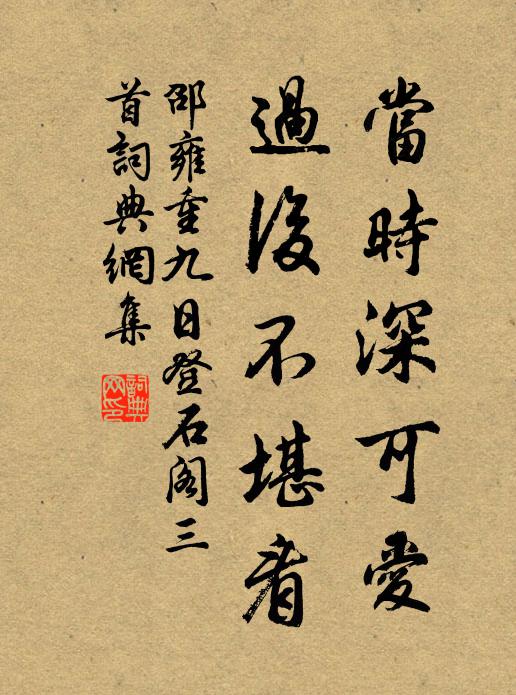 當時深可愛
過後不堪看
邵雍重九日登石閣三
首詞典網集
詞典
网印